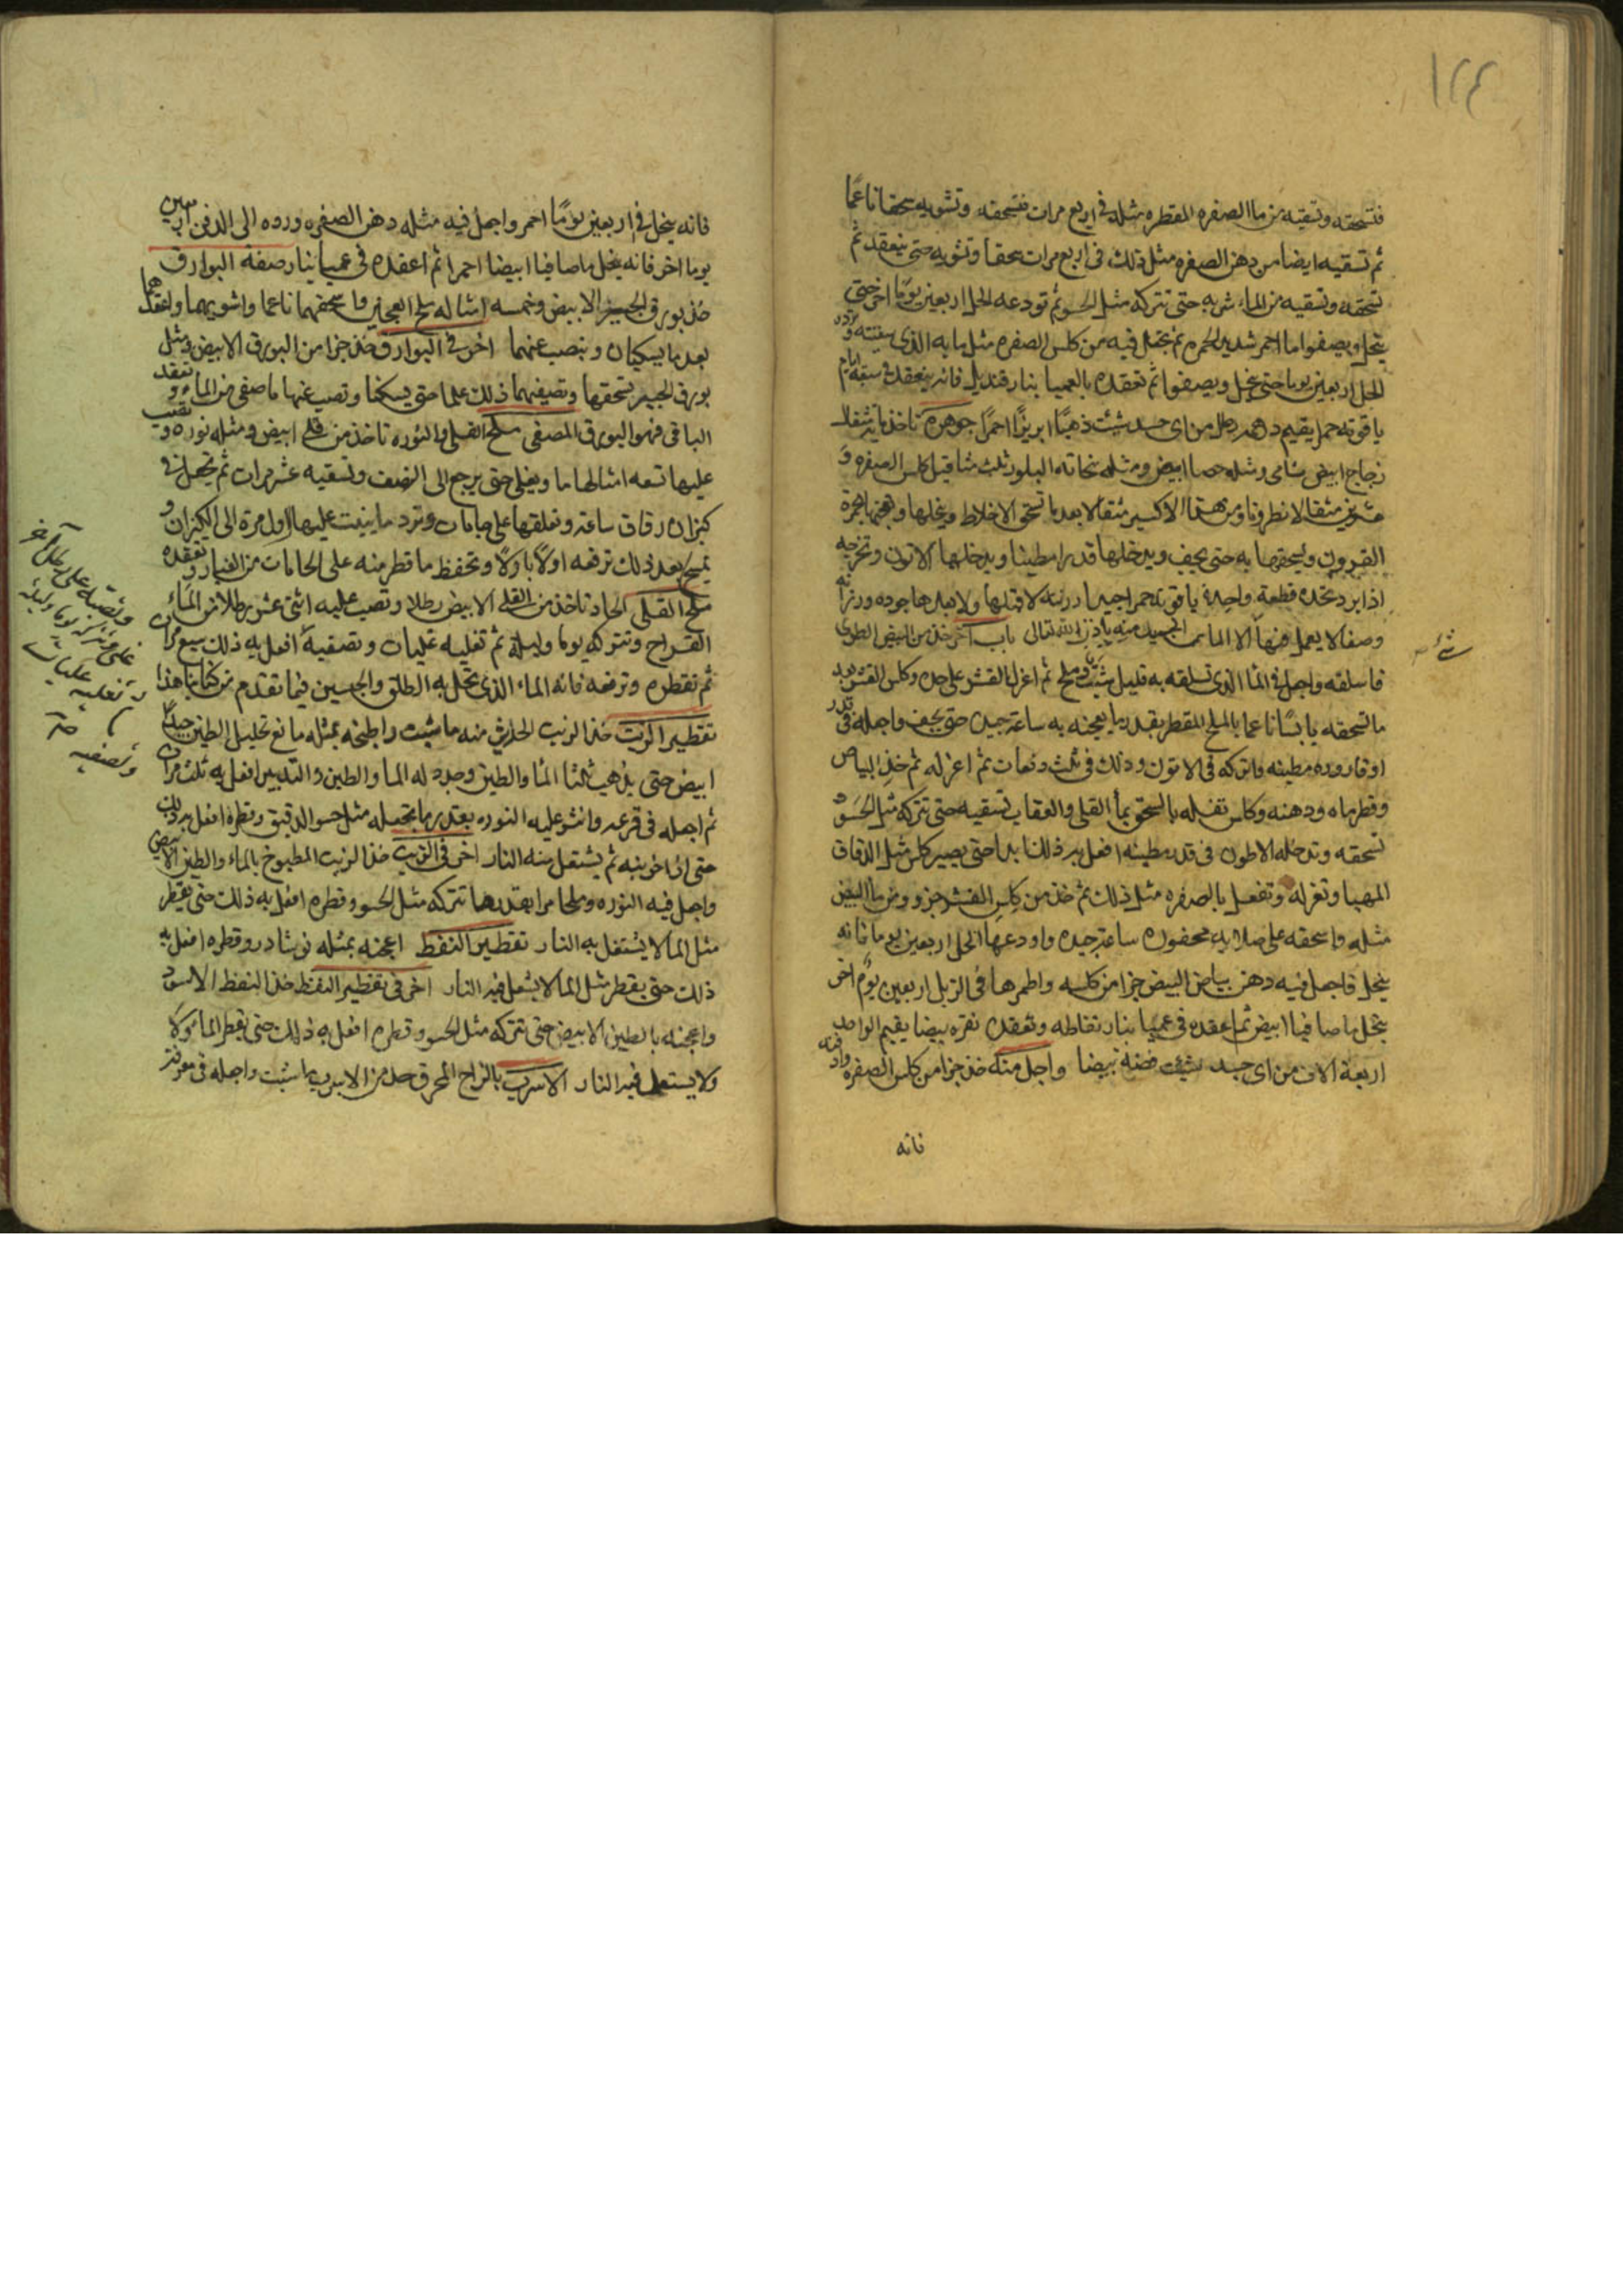 ١٢٤
فتسحقه وتسقيه من ما الصفره المقطره مثله فى اربع مرات فتسحقه وتشويه سحقا ناعما
ثم تسقيه ايضا من دهن الصفره مثل ذلك فى اربع مرات سحقا وتشويه حتى ينعقد ثم
تسحقه وتسقيه من الماء شربه حتى تتركه مثل الحسو ثم تودعه الحل اربعين يوما اخر حتى
ينحل ويصفوا ما احمر شديد الحمره ثم تجعل فيه من كلس الصفره مثل ما به الذى سقيته وترده
الحل اربعين يوما حتى ينحل ويصفوا ثم تعقده بالعميا بنار قنديل فانه ينعقد فى ستة ايام
ياقوته حمرا يقيم درهم رطل من اى جسد شئت ذهبا ابريزا احمرا جوهره تاخذ ماية مثقال
زجاج ابيض شامى ومثله حصا ابيض ومثله نحاته البلور ثلث مثاقيل كلس الصفره و
عشرين مثقالا نطرونا ومن هذا الاكسير مثقالا بعد ما تسحق الاخلاط وينخلها ويعجنها بمرة
القرون ويسحقها به حتى يجف ويدخلها قدرا مطينا ويدخلها الاتون وتخرجه
اذا برد تجده قطعة واحدة ياقوته حمرا جيدا رزينه لا قبلها ولا بعدها جوده ورزانه
وصفا لا يعمل فيها الا الماس الجيد منه باذن الله تعالى باب آخر خذ من البيض الطرى
فاسلقه واجعل فى الما الذى تسلقه به قليل شب وملح ثم اعزل القشر على حده وكلس القشر بعد
ما تسحقه يابسا ناعما بالملح المقطر بقدر ما يعجنه به ساعة جيده حتى يجف واجعله فى قدر
او قاروره مطينه واتركه فى الاتون وذلك فى ثلث دفعات ثم اعزله ثم خذ البياض
وقطر ماه ودهنه وكلس تفله بالسحق بما القلى والعقاب تسقيه حتى تتركه مثل الحسو
تسحقه وتدخله الاطون فى قدر مطينه افعل به ذلك ابدا حتى يصير كلس مثل الدقاق
المهيا وتعزله وتفعل بالصفره مثل ذلك ثم خذ من كلس القشر جزو ومن ما البيض
مثله واسحقه على صلايه محفوره ساعة جيده واودعها الحل اربعين يوما فانه
ينحل فاجعل فيه دهن بياض البيض جزا من كلسه واطمرها فى الزبل اربعين يوم اخر
ينحل ما صافيا ابيض ثم اعقده فى عميا بنار نفاطه وتعقده نقره بيضا يقيم الواحد
اربعة الاف من اى جسد شئت فضة بيضا واجل منه خذ جزا من كلس الصفره وادفنه
فانه
فانه ينحل فى اربعين يوما احمر واجعل فيه مثله دهن الصفره ورده الى الدفن اربعين
يوما اخر فانه ينحل ما صافيا ابيضا احمرا ثم اعقده فى عميا بنار صفة البوارق
خذ بورق الخبز الابيض وخمسه امثاله ملح العجين واسحقهما ناعما واشويهما واعقدهما
بعد ما يسكبان وينصب عنهما اخر فى البوارق خذ جزا من البورق الابيض ومثل
بورق الخبز تسحقها وتضيفهما ذلك علما حتى يسكنا وتصب عنها ما صفى من الماء وتعقد
الباقى فهو البورق المصفى ملح القلى والنوره تاخذ من قلى ابيض ومثله نوره وتصب
عليها تسعه امثالها ما ويغلى حتى يرجع الى النصف وتسقيه عشر مرات ثم تجعل فى
كيزان رقاق ساعة وتعلقها على جامات وترد ما ينبت عليها اول مرة الى الكيزان و
تمسح بعد ذلك ترفعه اولا باولا وتحفظ ما قطر منه على الجامات من الغبار وتعقده
ملح القلى الحاد تاخذ من القلى الابيض رطلا وتصب عليه اثنى عشر رطلا من الماء
القراح وتتركه يوما وليلة ثم تغليه غليات وتصفيه افعل به ذلك سبع مرات
ثم تقطره وترفعه فانه الماء الذى تحل به الطلق والجبسين فيما تقدم من كتابنا هذا
تقطير الزيت خذ الزيت الحار من منه ما شئت واطبخه بمثله ما مع تحليل الطين جيدا
ابيض حتى يذهب ثلثا الما والطين وجدد له الما والطين والتدبير افعل به ثلث مرات
ثم اجعله فى قرعه وانثر عليه النوره بقدر ما تجعله مثل حسو الدقيق وقطره افعل به ذلك
حتى اذا خرينه ثم يشتعل منه النار اخر فى الزيت خذ الزيت المطبوخ بالماء والطين الابيض
واجعل فيه النوره وملحا مرا بقدرها تتركه مثل الحسو وقطره افعل به ذلك حتى يقطر
مثل الما لا يشتعل به النار تقطير النفط اعجنه بمثله نوشادر وقطره افعل به
ذلك حتى يقطر مثل الما لا يشعل فيه النار اخر فى تقطير النفط خذ النفط الاسود
واعجنه بالطين الابيض حتى تتركه مثل الحسو وقطره افعل به ذلك حتى يقطر الما
ولا يستعل فيه النار الاسرب بالزاج المحرق خذ من الاسرب ما شئت واجعله فى مغرفة
وتصبه على رطل آخر
قلى وتتركه يوما وليلة
وتغليه غليات
وتصفيه